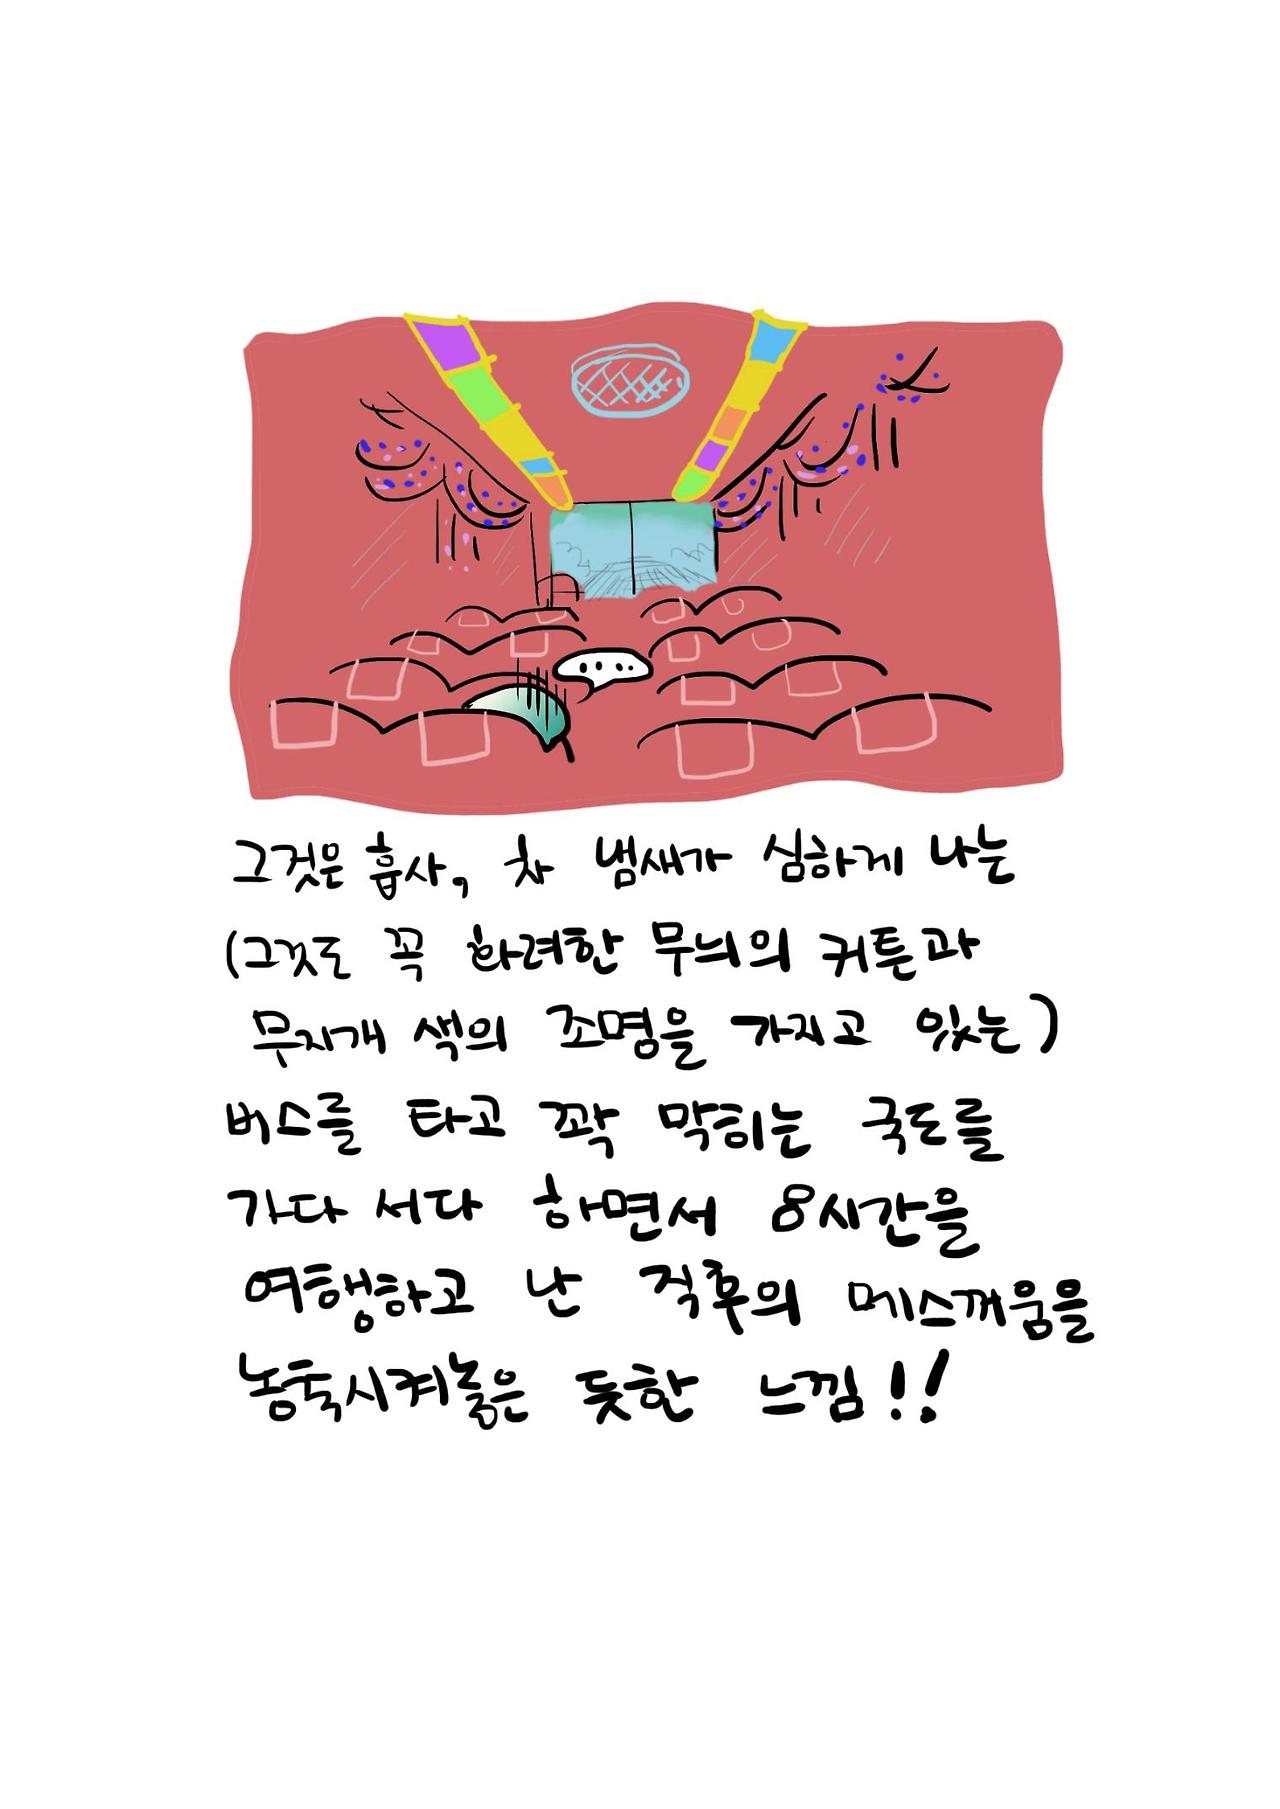 ....
그것은 흡사, 차 냄새가 심하게 나는
(그것도 꼭 화려한 무늬의 커튼과
무지개 색의 조명을 가지고 있는)
버스를 타고 꽉 막히는 국도를
가다 서다 하면서 8시간을
여행하고 난 직후의 메스꺼움을
농축시켜놓은 듯한 느낌!!